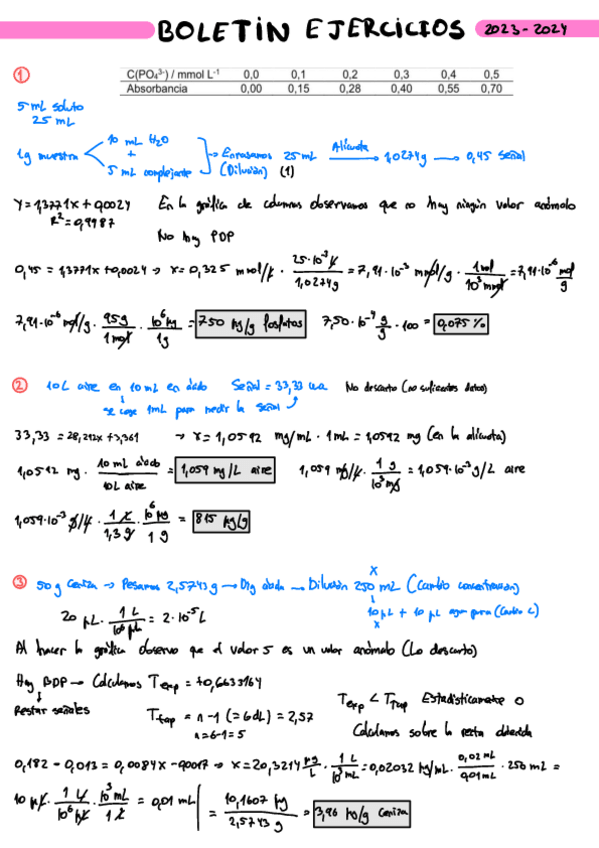 BOLETÍN EJERCICIOS 2023-2024
① C(PO₄³⁻) / mmol L⁻¹ 0,0 0,1 0,2 0,3 0,4 0,5
Absorbancia 0,00 0,15 0,28 0,40 0,55 0,70
5 mL soluto
25 mL
1g muestra 10 mL H₂O + 5 mL complejante → Enrasamos 25 mL (Dilución) (1) Alícuota → 1,0274g → 0,45 Señal
Y=1,3771x + 0,0024 En la gráfica de columnas observamos que no hay ningún valor anómalo
R²=0,9987
No hay PDP
0,45 = 1,3771x + 0,0024 → x = 0,325 mmol/L · 25·10⁻³ L / 1,0274g = 7,91·10⁻³ mmol/g · 1 mol / 10³ mmol = 7,91·10⁻⁶ mol/g
7,91·10⁻⁶ mol/g · 95g / 1 mol · 10⁶ µg / 1g = 750 µg/g fosfatos 7,50·10⁻⁴ g/g · 100 = 0,075 %
② 10L aire en 10 mL en ácido Señal = 33,33 u.a No descarto (no suficientes datos)
→ se coge 1mL para medir la señal
33,33 = 28,212x + 3,361 → x = 1,0592 mg/mL · 1 mL = 1,0592 mg (en la alícuota)
1,0592 mg · 10 mL ácido / 10L aire = 1,059 mg/L aire 1,059 mg/L · 1 g / 10³ mg = 1,059·10⁻³ g/L aire
1,059·10⁻³ g/L · 1 L / 1,3 g · 10⁶ µg / 1 g = 815 µg/g
③ 50 g Ceniza → Pesamos 2,5743 g → Dig ácida → Dilución 250 mL (Cambio concentración)
x
20 µL · 1 L / 10⁶ µL = 2·10⁻⁵ L
10 µL + 10 µL agua pura (Cambio C)
x
Al hacer la gráfica observo que el valor 5 es un valor anómalo (Lo descarto)
Hay BDP → Calculamos Texp = +0,6633164
Restar señales
Ttap = n-1 (=GdL) = 2,57
n=6-1=5
Texp < Ttap Estadísticamente 0
Calculamos sobre la recta obtenida
0,182 - 0,013 = 0,0084x - 0,0017 → x = 20,3214 µg/L · 1 L / 10³ mL = 0,02032 µg/mL · 0,02 mL / 0,01 mL · 250 mL =
10 µL · 1 L / 10⁶ µL · 10³ mL / 1 L = 0,01 mL
= 10,1607 µg / 2,5743 g = 3,96 µg/g Ceniza